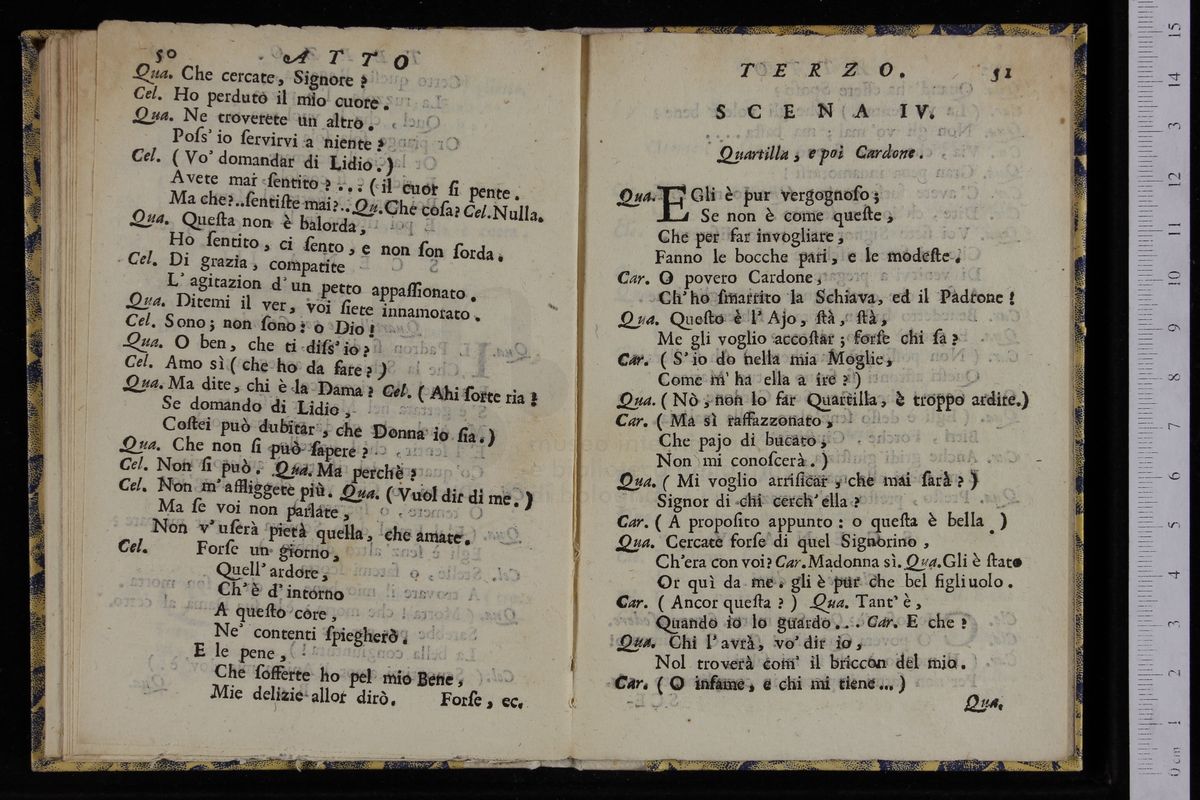 50 ATTO
Qua. Che cercate, Signore?
Cel. Ho perduto il mio cuore.
Qua. Ne troverete un altro.
Poſs' io ſervirvi a niente?
Cel. (Vo' domandar di Lidio.)
Avete mai ſentito?... (il cuor ſi pente.
Ma che?..ſentiſte mai?..Qu.Che coſa? Cel.Nulla.
Qua. Queſta non è balorda,
Ho ſentito, ci ſento, e non ſon ſorda.
Cel. Di grazia, compatite
L' agitazion d'un petto appaſſionato.
Qua. Ditemi il ver, voi ſiete innamorato.
Cel. Sono; non ſono: o Dio!
Qua. O ben, che ti diſs' io?
Cel. Amo sì (che ho da fare?)
Qua. Ma dite, chi è la Dama? Cel. (Ahi ſorte ria!
Se domando di Lidio,
Coſtei può dubitar, che Donna io ſia.)
Qua. Che non ſi può ſapere?
Cel. Non ſi può. Qua. Ma perchè?
Cel. Non m'affliggete più. Qua. (Vuol dir di me.)
Ma ſe voi non parlate,
Non v' uſerà pietà quella, che amate.
Cel. Forſe un giorno,
Quell' ardore,
Ch' è d'intorno
A queſto core,
Ne' contenti ſpiegherò.
E le pene,
Che ſofferte ho pel mio Bene,
Mie delizie allor dirò. Forſe, ec.
TERZO. 51
SCENA IV.
Quartilla, e poi Cardone.
Qua. EGli è pur vergognoſo;
Se non è come queſte,
Che per far invogliare,
Fanno le bocche pari, e le modeſte.
Car. O povero Cardone,
Ch'ho ſmarrito la Schiava, ed il Padrone!
Qua. Queſto è l' Ajo, ſtà, ſtà,
Me gli voglio accoſtar; forſe chi ſa?
Car. (S'io do nella mia Moglie,
Come m' ha ella a ire?)
Qua. (Nò, non lo far Quartilla, è troppo ardire.)
Car. (Ma sì raffazzonato,
Che pajo di bucato,
Non mi conoſcerà.)
Qua. (Mi voglio arriſicar, che mai ſarà?)
Signor di chi cerch'ella?
Car. (A propoſito appunto: o queſta è bella.)
Qua. Cercate forſe di quel Signorino,
Ch'era con voi? Car.Madonna sì. Qua.Gli è ſtato
Or quì da me. gli è pur che bel figliuolo.
Car. (Ancor queſta?) Qua. Tant' è,
Quando io lo guardo... Car. E che?
Qua. Chi l'avrà, vo' dir io,
Nol troverà com' il briccon del mio.
Car. (O infame, e chi mi tiene...)
Qua.